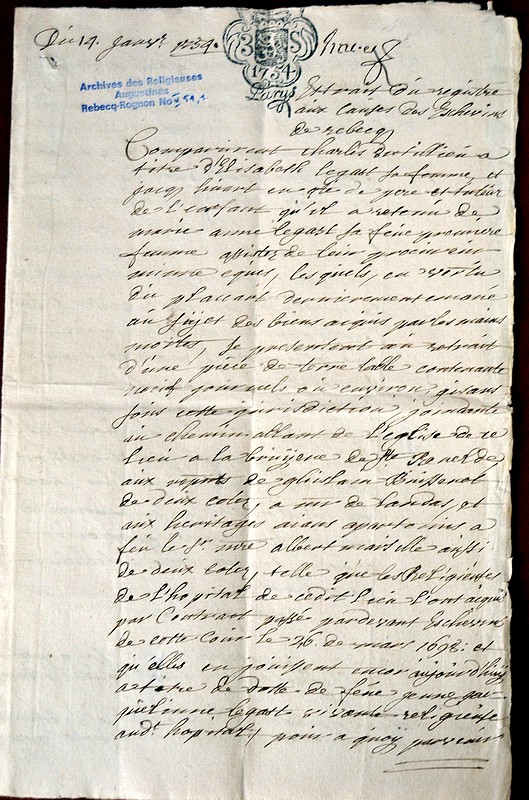 Du 19. Janv.r 1734.
3 S
1754
Archives des Religieuses
Augustines
Rebecq-Rognon No V 51,1
Extrait du registre
aux causes des Eschevins
de rebecq
Comparurent charles
titre d'Elisabeth legast sa femme, et
jacq en de pere et tuteur
de l'enfant qu'il a retenu de
marie anne legast sa feue premiere
femme assistez de leur
maitre les quels, en vertu
du placcart dernierement emané
au sujet des biens aiquis par les mains
mortes, se presentent au retrait
d'une piece de terre labl contenante
noeuf journels ou environ gisans
sous cette jurisdiction, joindante
au chemin allant de l'eglise de ce
lieu a la bruyere de
aux de ghislain
de deux cotez, a mr de Landas, et
aux heritages aians apartenus a
feu le Sr. albert aussi
de deux cotez, telle que les Religieuses
de l'hopital de cedit lieu l'ont acquis
par Contract passé pardevant Eschevins
de cette Cour le 26 de mars 1698: et
qu'elles en jouissent encor aujourd'huy
a titre de dotte de feue jenne jac-
quelenne legast vivante religieuse
audt hopital, pour a quoy parvenir